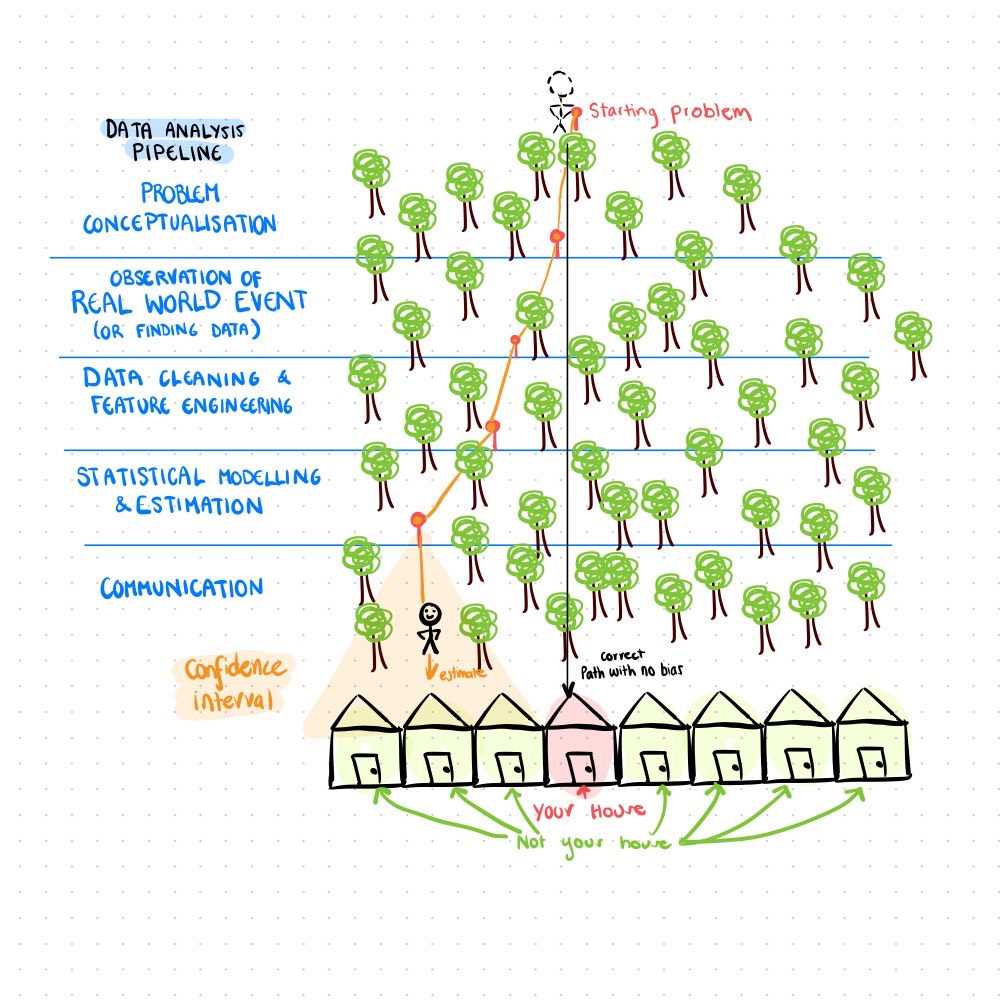 Starting problem
DATA ANALYSIS
PIPELINE
PROBLEM
CONCEPTUALISATION
OBSERVATION OF
REAL WORLD EVENT
(OR FINDING DATA)
DATA CLEANING &
FEATURE ENGINEERING
STATISTICAL MODELLING
& ESTIMATION
COMMUNICATION
Confidence
interval
estimate
correct
Path with no bias
Your House
Not your house